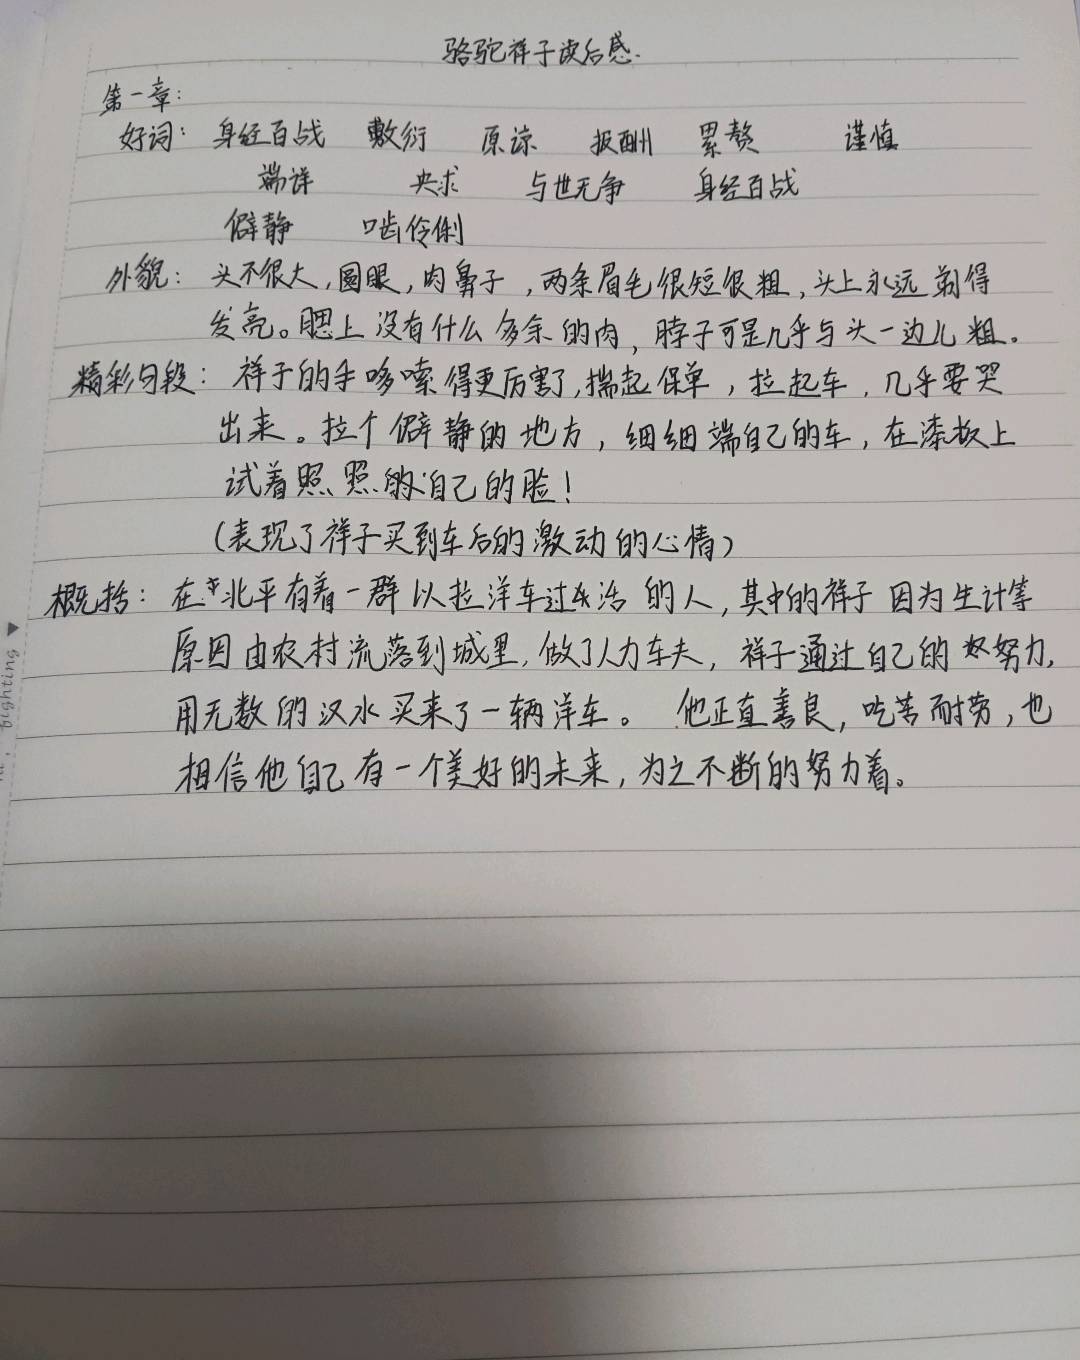 骆驼祥子读后感.
第一章:
好词: 身经百战 敷衍 原谅 报酬 累赘 谨慎
端详 央求 与世无争 身经百战
僻静 啮伶俐
外貌: 头不很大,圆眼,肉鼻子,两条眉毛很短很粗,头上永远剃得
发亮。腮上没有什么多余的肉,脖子可是几乎与头一边儿粗。
精彩句段: 祥子的手哆嗦得更厉害了,揣起保单,拉起车,几乎要哭
出来。拉个僻静的地方,细细端自己的车,在漆板上
试着照照自己的脸!
(表现了祥子买到车后的激动的心情)
概括: 在北平有着一群以拉洋车过活的人,其中的祥子因为生计等
原因由农村流落到城里,做了人力车夫,祥子通过自己的努力,
用无数的汉水买来了一辆洋车。他正直善良,吃苦耐劳,也
相信他自己有一个美好的未来,为之不断的努力着。
fighting